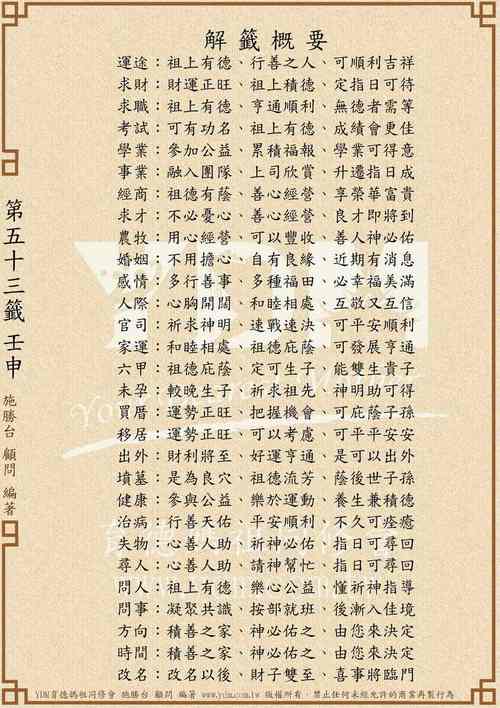 解籤概要
運途：祖上有德、行善之人、可順利吉祥
求財：財運正旺、祖上積德、定指日可待
求職：祖上有德、亨通順利、無德者需等
考試：可有功名、祖上有德、成績會更佳
學業：參加公益、累積福報、學業可得意
事業：融入團隊、上司欣賞、升遷指日成
經商：祖德有蔭、善心經營、享榮華富貴
求才：不必憂心、善心經營、良才即將到
農牧：用心經營、可以豐收、善人神必佑
婚姻：不用擔心、自有良緣、近期有消息
感情：多行善事、多種福田、必幸福美滿
人際：心胸開闊、和睦相處、互敬又互信
官司：祈求神明、速戰速決、可平安順利
家運：和睦相處、祖德庇蔭、可發展亨通
六甲：祖德庇蔭、定可生子、能雙生貴子
未孕：較晚生子、祈求祖先、神明助可得
買厝：運勢正旺、把握機會、可庇蔭子孫
移居：運勢正旺、可以考慮、可平平安安
出外：財利將至、好運亨通、是可以出外
墳墓：是為良穴、祖德流芳、蔭後世子孫
健康：參與公益、樂於運動、養生兼積德
治病：行善天佑、平安順利、不久可痊癒
失物：心善人助、祈神必佑、指日可尋回
尋人：心善人助、請神幫忙、指日可尋回
問人：祖上有德、樂心公益、懂祈神指導
問事：凝聚共識、按部就班、後漸入佳境
方向：積善之家、神必佑之、由您來決定
時間：積善之家、神必佑之、由您來決定
改名：改名以後、財子雙至、喜事將臨門
第五十三籤 壬申
施勝台 顧問 編著
YDM育德媽祖同修會 施勝台 顧問 編著 www.ydm.com.tw 版權所有，禁止任何未經允許的商業再製行為
YDM